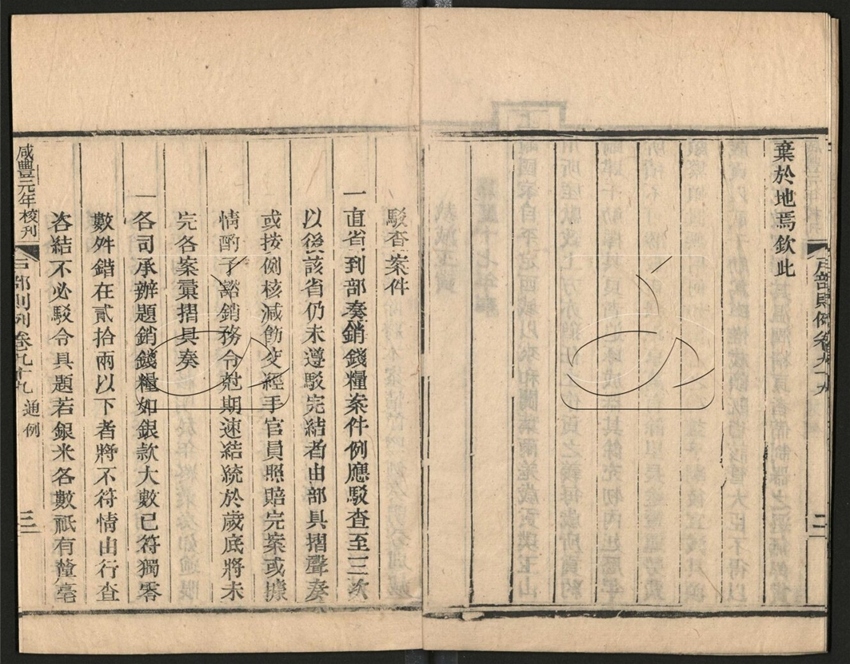 棄於地焉欽此
戶部則例卷九十九
三
駁查案件
一直省到部奏銷錢糧案件例應駁查至三次
以後該省仍未遵駁完結者由部具摺聲奏
或按例核減飭交經手官員照賠完案或據
情酌予豁銷務令尅期速結統於歲底將未
完各案彙摺具奏
一各司承辦題銷錢糧如銀款大數已符獨零
數舛錯在貳拾兩以下者將不符情由行查
咨結不必駁令具題若銀米各數祇有釐毫
咸豐元年校刊
戶部則例卷九十九
通例
三